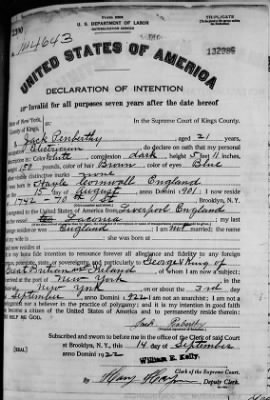 U. S. DEPARTMENT OF LABOR
TRIPLICATE
No. 104643
132986
UNITED STATES OF AMERICA
DECLARATION OF INTENTION
Invalid for all purposes seven years after the date hereof
State of New York,
County of Kings,
In the Supreme Court of Kings County.
I, Jack Penberthy aged 21 years,
occupation Electrician, do declare on oath that my personal
description is: Color White, complexion dark, height 5 feet 11 inches,
weight 150 pounds, color of hair Brown, color of eyes Blue
other visible distinctive marks none
I was born in Hayle Cornwall England
on the 15 day of August, anno Domini 1901; I now reside
at 1742 - 70th St Brooklyn, N. Y.
I emigrated to the United States of America from Liverpool England
on the vessel Laconia; my last
foreign residence was England; I am not married; the name
of my wife is; she was born at
and now resides at
It is my bona fide intention to renounce forever all allegiance and fidelity to any foreign
prince, potentate, state, or sovereignty, and particularly to George V King of
Great Britain and Ireland, of whom I am now a subject;
I arrived at the port of New York, in the
State of New York, on or about the 3rd day
of September, anno Domini 1922; I am not an anarchist; I am not a
polygamist nor a believer in the practice of polygamy; and it is my intention in good faith
to become a citizen of the United States of America and to permanently reside therein:
SO HELP ME GOD.
Jack Penberthy
Subscribed and sworn to before me in the office of the Clerk of said Court
at Brooklyn, N. Y., this 14 day of September
anno Domini 1922
[SEAL]
William E. Kelly,
Clerk of the Supreme Court.
By Deputy Clerk.